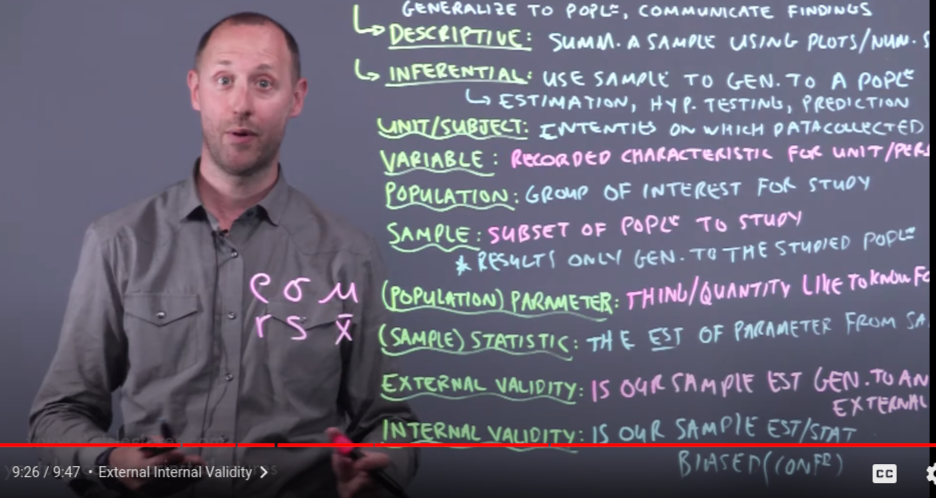 GENERALIZE TO POPLE, COMMUNICATE FINDINGS
DESCRIPTIVE: SUMM. A SAMPLE USING PLOTS/NUM. S
INFERENTIAL: USE SAMPLE TO GEN. TO A POPLE
ESTIMATION, HYP. TESTING, PREDICTION
UNIT/SUBJECT: ENTENTIES ON WHICH DATA COLLECTED
VARIABLE: RECORDED CHARACTERISTIC FOR UNIT/PERS
POPULATION: GROUP OF INTEREST FOR STUDY
SAMPLE: SUBSET OF POPLE TO STUDY
* RESULTS ONLY GEN. TO THE STUDIED POPLE
ρ σ μ
(POPULATION) PARAMETER: THING/QUANTITY LIKE TO KNOW FO
r S x̄
(SAMPLE) STATISTIC: THE EST OF PARAMETER FROM SA
EXTERNAL VALIDITY: IS OUR SAMPLE EST GEN. TO AN
EXTERNAL
INTERNAL VALIDITY: IS OUR SAMPLE EST/STAT
BIASED (CONFD)
9:26 / 9:47 • External Internal Validity >
CC